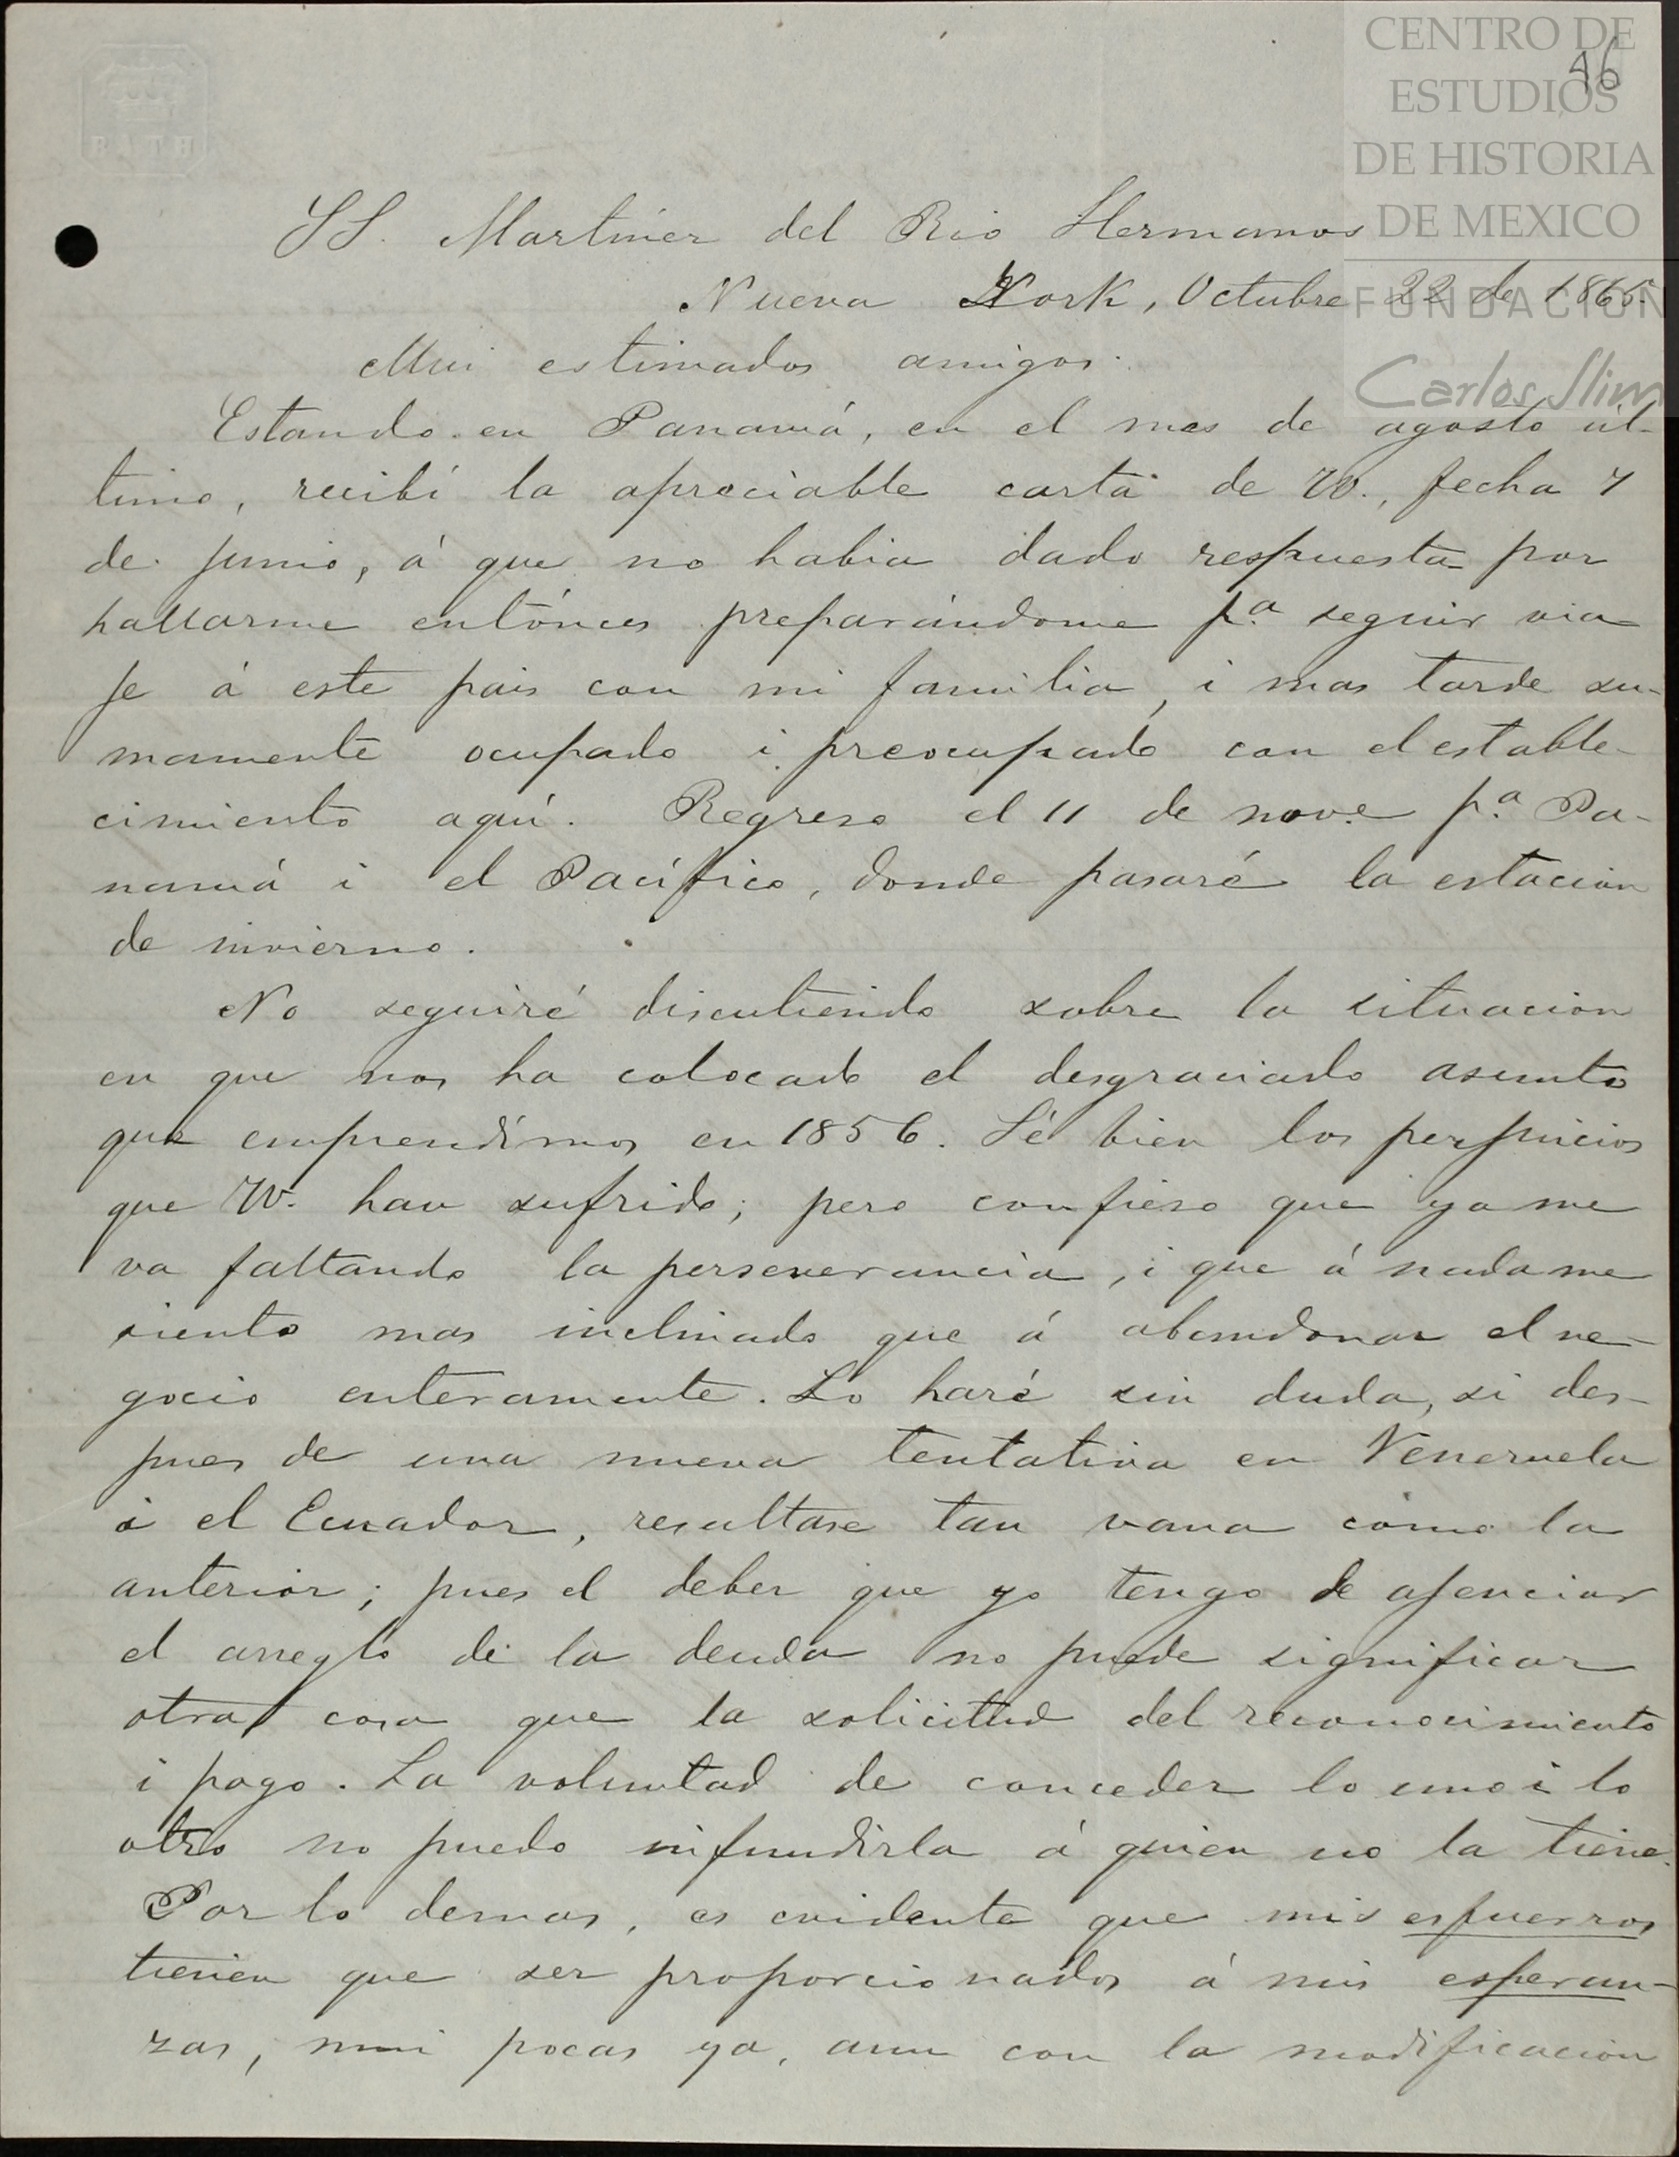 CENTRO DE
ESTUDIOS
DE HISTORIA
DE MEXICO
FUNDACIÓN
Carlos Slim
46
BATH
SS. Martínez del Rio Hermanos
Nueva York, Octubre 22 de 1865.
Mui estimados amigos:
Estando en Panamá, en el mes de agosto úl-
timo, recibí la apreciable carta de VV., fecha 7
de junio, á que no habia dado respuesta por
hallarme entónces preparándome p.a seguir via-
je á este pais con mi familia, i mas tarde su-
mamente ocupado i preocupado con el estable-
cimiento aquí. Regreso el 11 de nov.e p.a Pa-
namá i el Pacífico, donde pasaré la estacion
de invierno.
No seguiré discutiendo sobre la situacion
en que nos ha colocado el desgraciado asunto
que emprendímos en 1856. Sé bien los perjuicios
que VV. han sufrido; pero confieso que ya me
va faltando la perseverancia, i que á nada me
siento mas inclinado que á abandonar el ne-
gocio enteramente. Lo haré sin duda, si des-
pues de una nueva tentativa en Venezuela
i el Ecuador, resultase tan vana como la
anterior; pues el deber que yo tengo de ajenciar
el arreglo de la deuda no puede significar
otra cosa que la solicitud del reconocimiento
i pago. La voluntad de conceder lo uno i lo
otro no puedo infundirla á quien no la tiene.
Por lo demas, es evidente que mis esfuerzos
tienen que ser proporcionados á mis esperan-
zas, mui pocas ya, aun con la modificacion